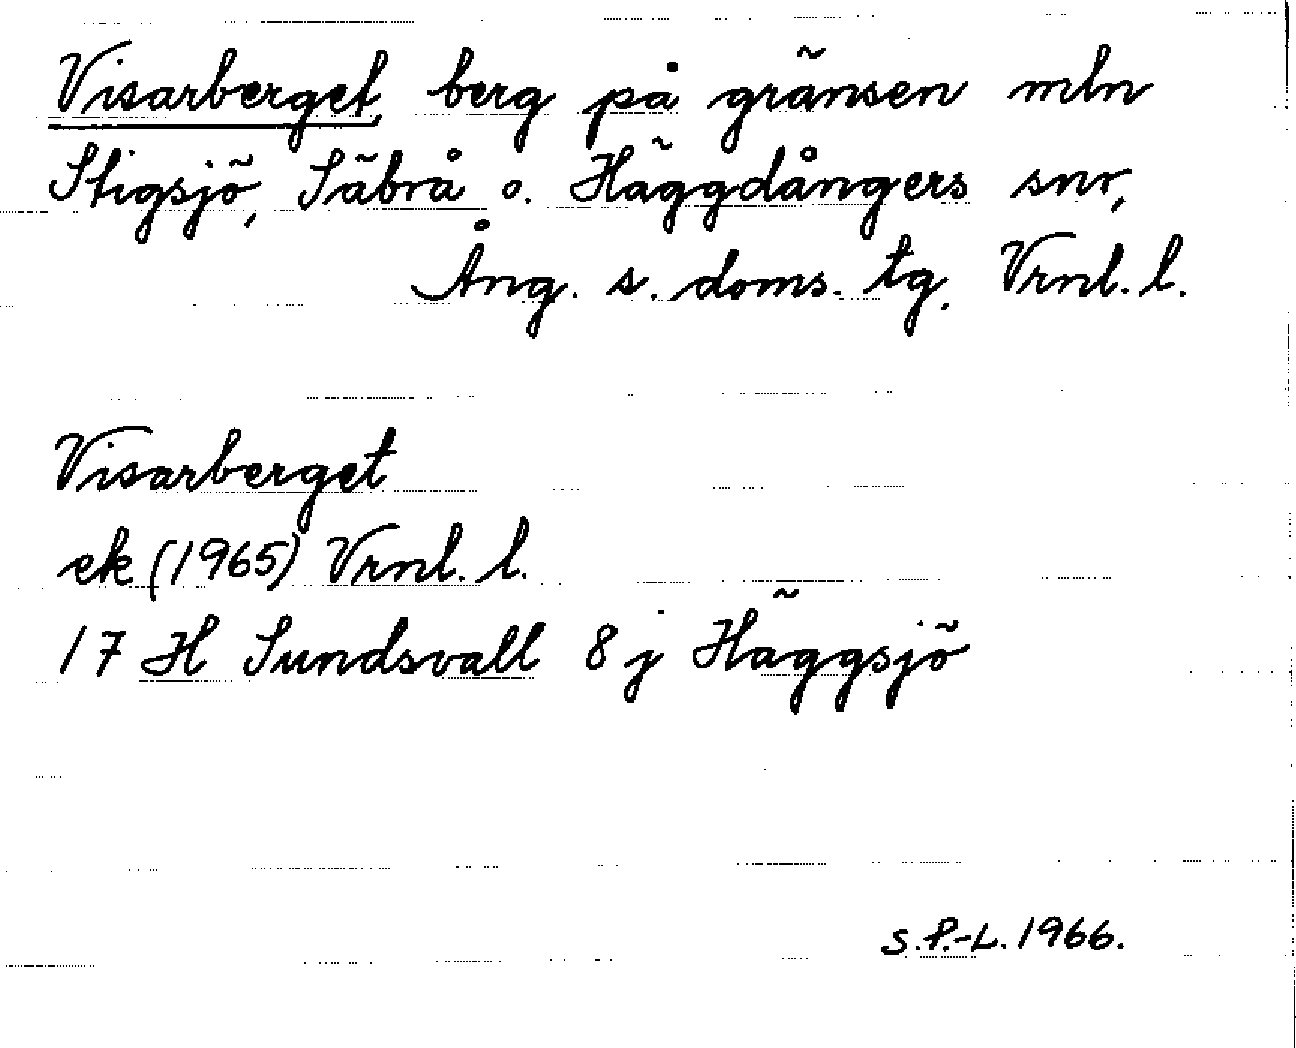 Visarberget, berg på gränsen mln
Stigsjö, Säbrå o. Häggdångers snr,
Ång. s. doms. tg. Vrnl. l.
Visarberget
ek (1965) Vrnl. l.
17 H Sundsvall 8 j Häggsjö
S.P.-L. 1966.